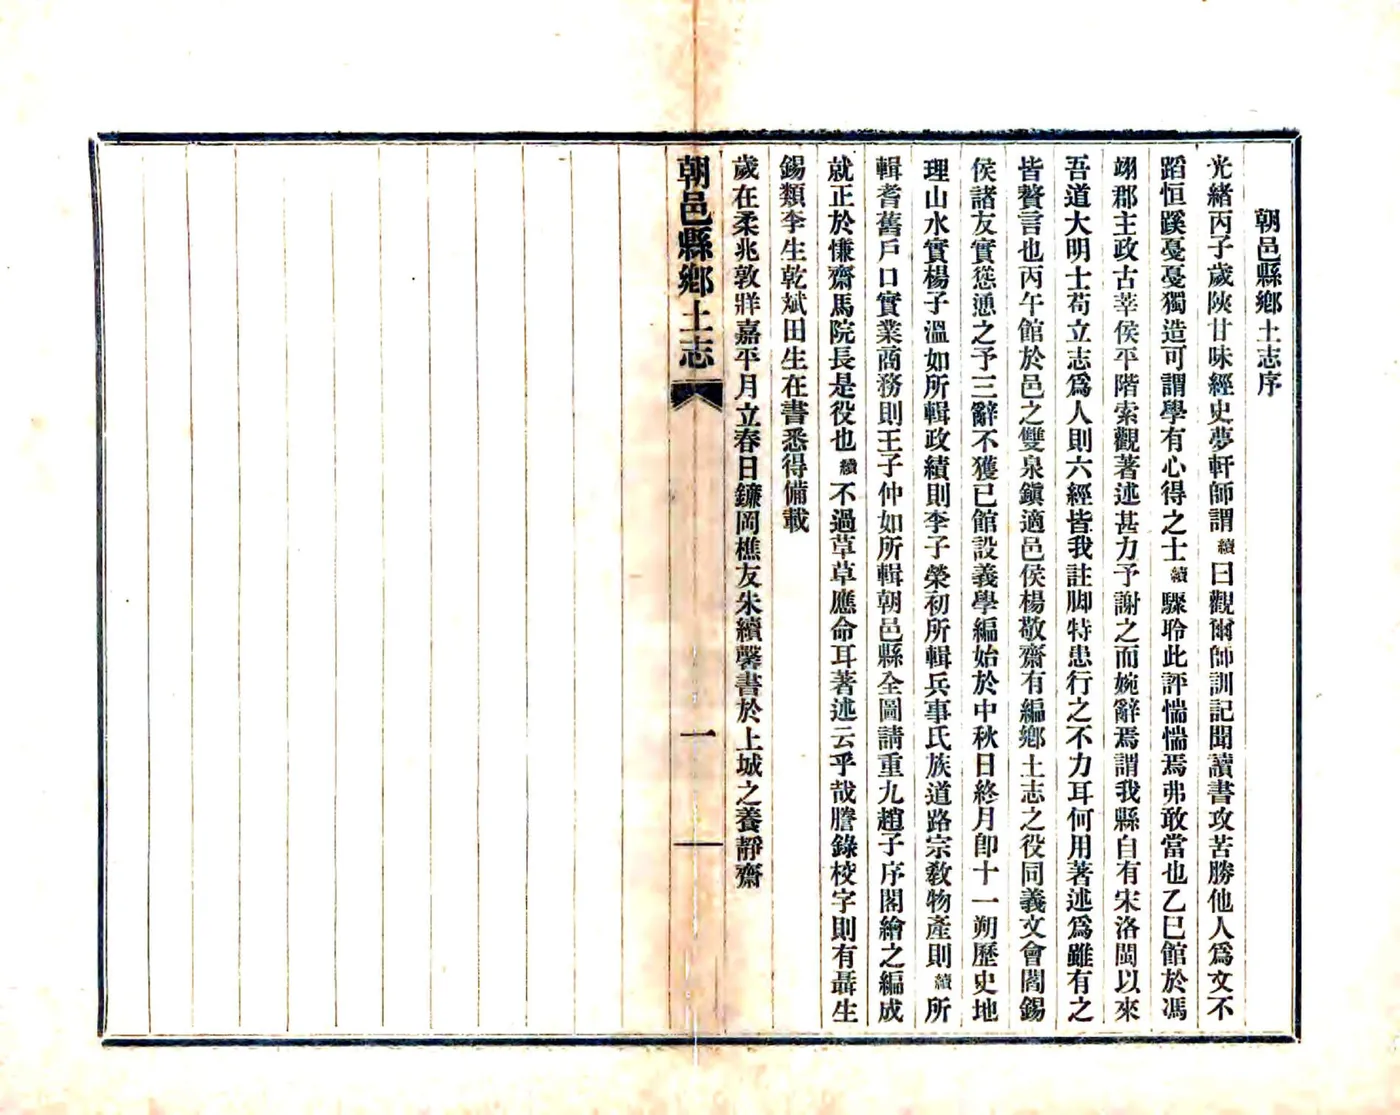 朝邑縣鄉土志序
光緒丙子歲陝甘味經史夢軒師謂續曰觀爾師訓記聞讀書攻苦勝他人爲文不
蹈恒蹊戞戞獨造可謂學有心得之士續驟聆此評惴惴焉弗敢當也乙巳館於馮
翊郡主政古莘侯平階索觀著述甚力予謝之而婉辭焉謂我縣自有宋洛閩以來
吾道大明士苟立志爲人則六經皆我註脚特患行之不力耳何用著述爲雖有之
皆贅言也丙午館於邑之雙泉鎭適邑侯楊敬齋有編鄉土志之役同義文會閻錫
侯諸友實慫慂之予三辭不獲已館設義學編始於中秋日終月卽十一朔歷史地
理山水實楊子溫如所輯政績則李子榮初所輯兵事氏族道路宗敎物產則續所
輯耆舊戶口實業商務則王子仲如所輯朝邑縣全圖請重九趙子序閣繪之編成
就正於慊齋馬院長是役也續不過草草應命耳著述云乎哉謄錄校字則有聶生
錫類李生乾斌田生在書悉得備載
歲在柔兆敦牂嘉平月立春日鐮岡樵友朱續馨書於上城之養靜齋
朝邑縣鄉土志
一